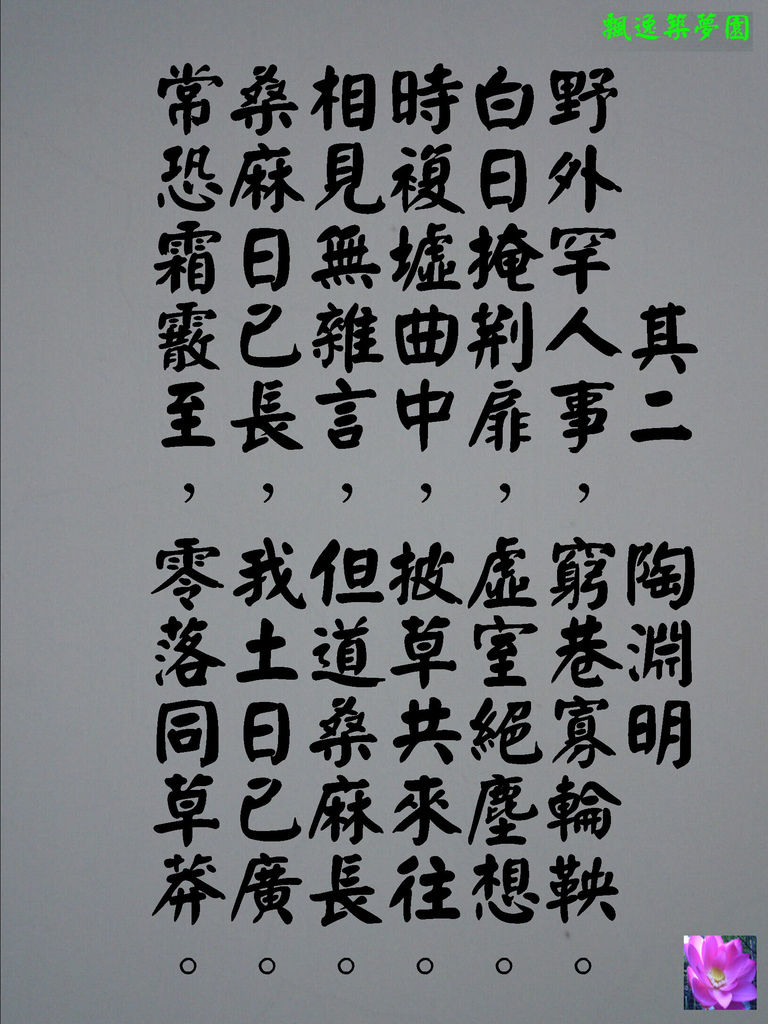 飄逸築夢園
其二 陶淵明
野外罕人事，窮巷寡輪鞅。
白日掩荆扉，虛室絕塵想。
時複墟曲中，披草共來往。
相見無雜言，但道桑麻長。
桑麻日已長，我土日已廣。
常恐霜霰至，零落同草莽。